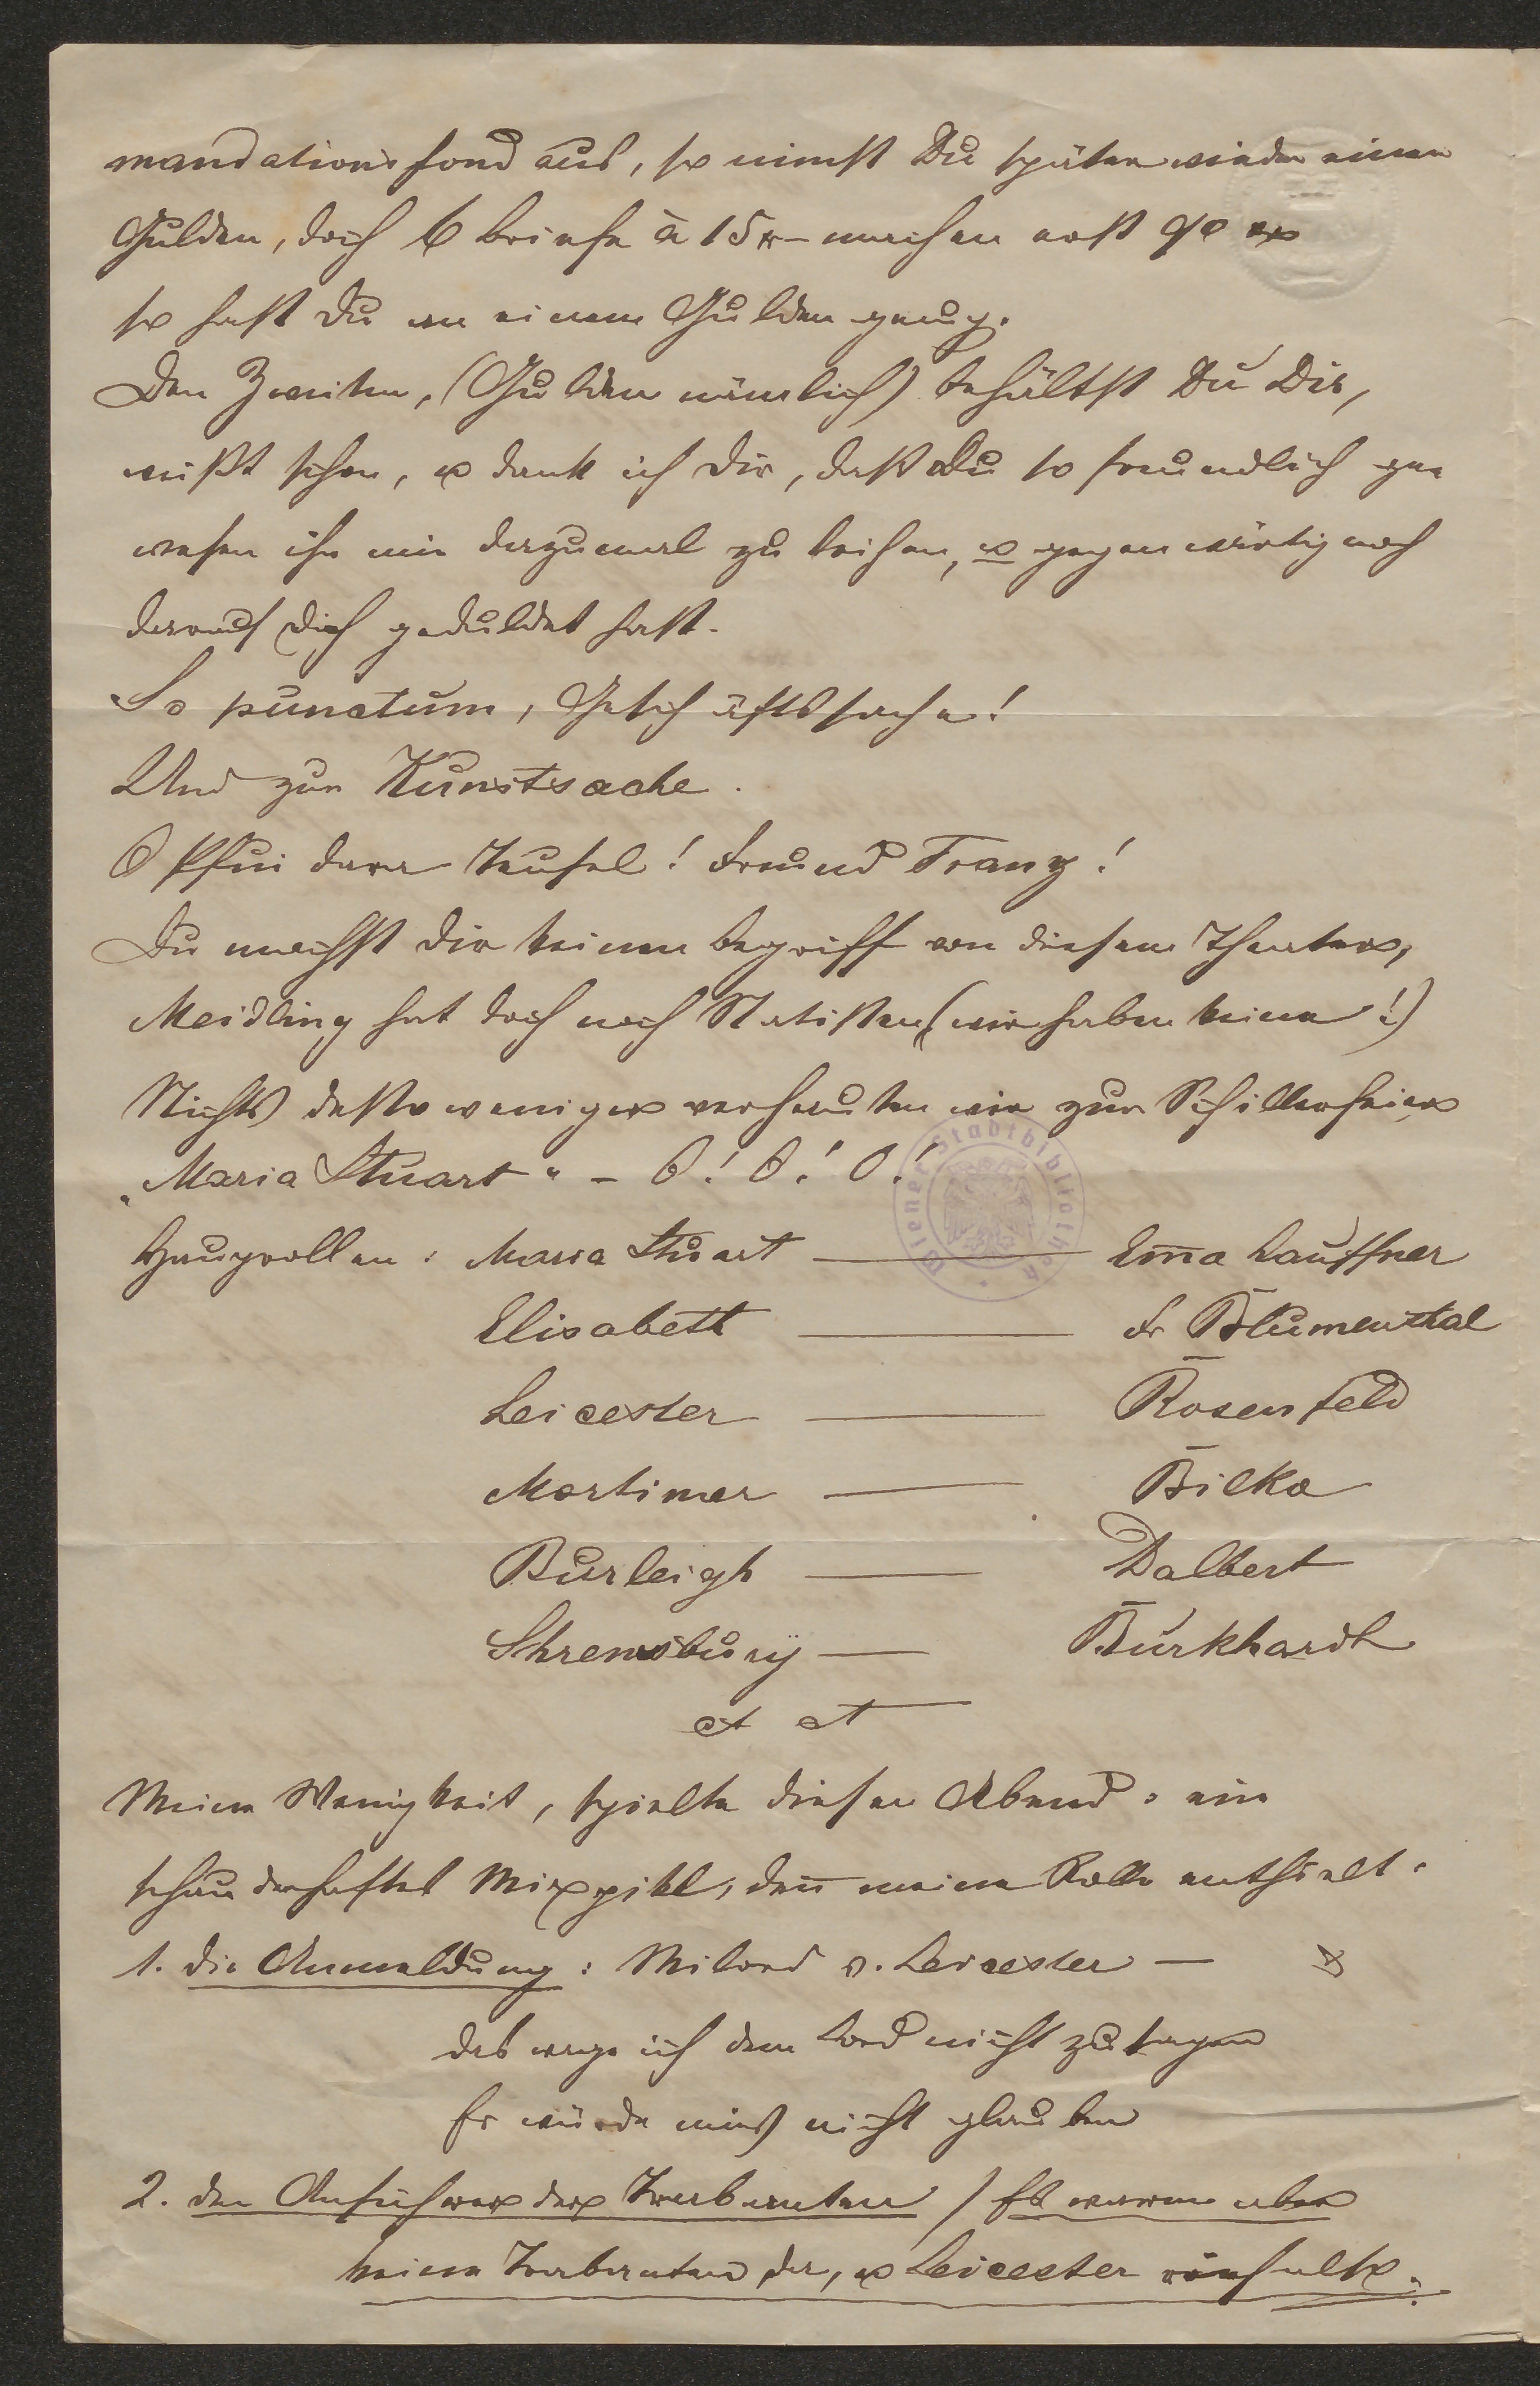 mandationsfond aus, so nimst Du später wieder einen
Gulden, doch 6 briefe à 15 x– machen erst 90 xr
so hast Du an einem Gulden genug.
Den Zweiten, (Gulden nämlich) behältst Du Dir,
weißt schon, u dank ich Dir, daß Du so freundlich ge¬
wesen ihn mir dazumal zu leihen, u gegenwärtig noch
darauf Dich geduldet hast.
So punctum, Geschäftssache!
Und zur Kunstsache.
O Pfui daver Teufel! Freund Franz!
Du machst Dir keinen begriff von diesem Theater,
Meidling hat doch noch Statisten (wir haben keine!)
Nichts destoweniger verhauten wir zur Schillerfeier
„Maria Stuart" – O! O! O!
Hauprollen: Maria Stuart — Em̅a Lauffner
Elisabeth — Fr Blumenthal
Leicester — Rosenfeld
Mortimer — Bilka
Burleigh — Dalbert
Shrewsbury — Burkhardt
et et
Meine Wenigkeit, spielte diesen Abend: ein
schauderhaftes Mixpikl, den̅ meine Rolle enthielt:
1. die Anmeldung: Milord v. Leicester –
das wage ich dem Lord nicht zu sagen
Er würde mirs nicht glauben
2. den Anführer der Trabanten / Es waren aber
keine Trabanten da, u Leicester